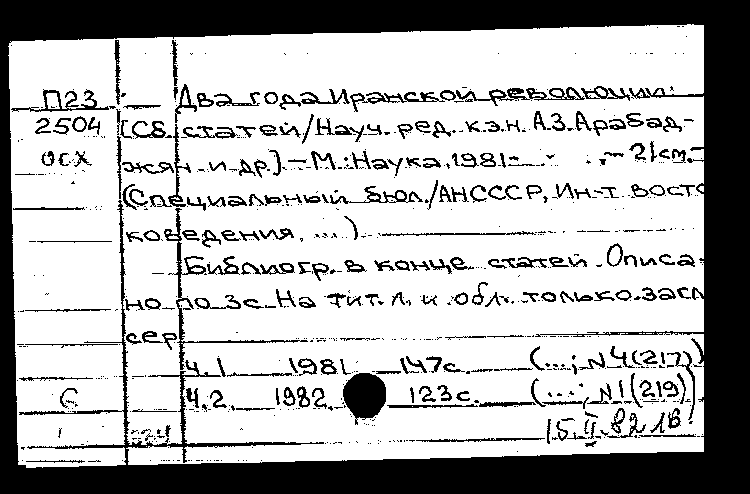 П23 Два года Иранской революции:
2504 [Сб. статей/Науч. ред. к.э.н. А.З.Арабад-
осх жян и др.] – М.: Наука, 1981- . – 21см. –
(Специальный бюл./АНСССР, Ин-т восто
коведения, ...)
Библиогр. в конце статей. Описа-
но по 3с. На тит.л. и обл. только загл
сер
Ч.1 1981 147с. (...; N4(217))
6 Ч.2. 1982. 123с. (...; N1(219))
15.II.82 1в